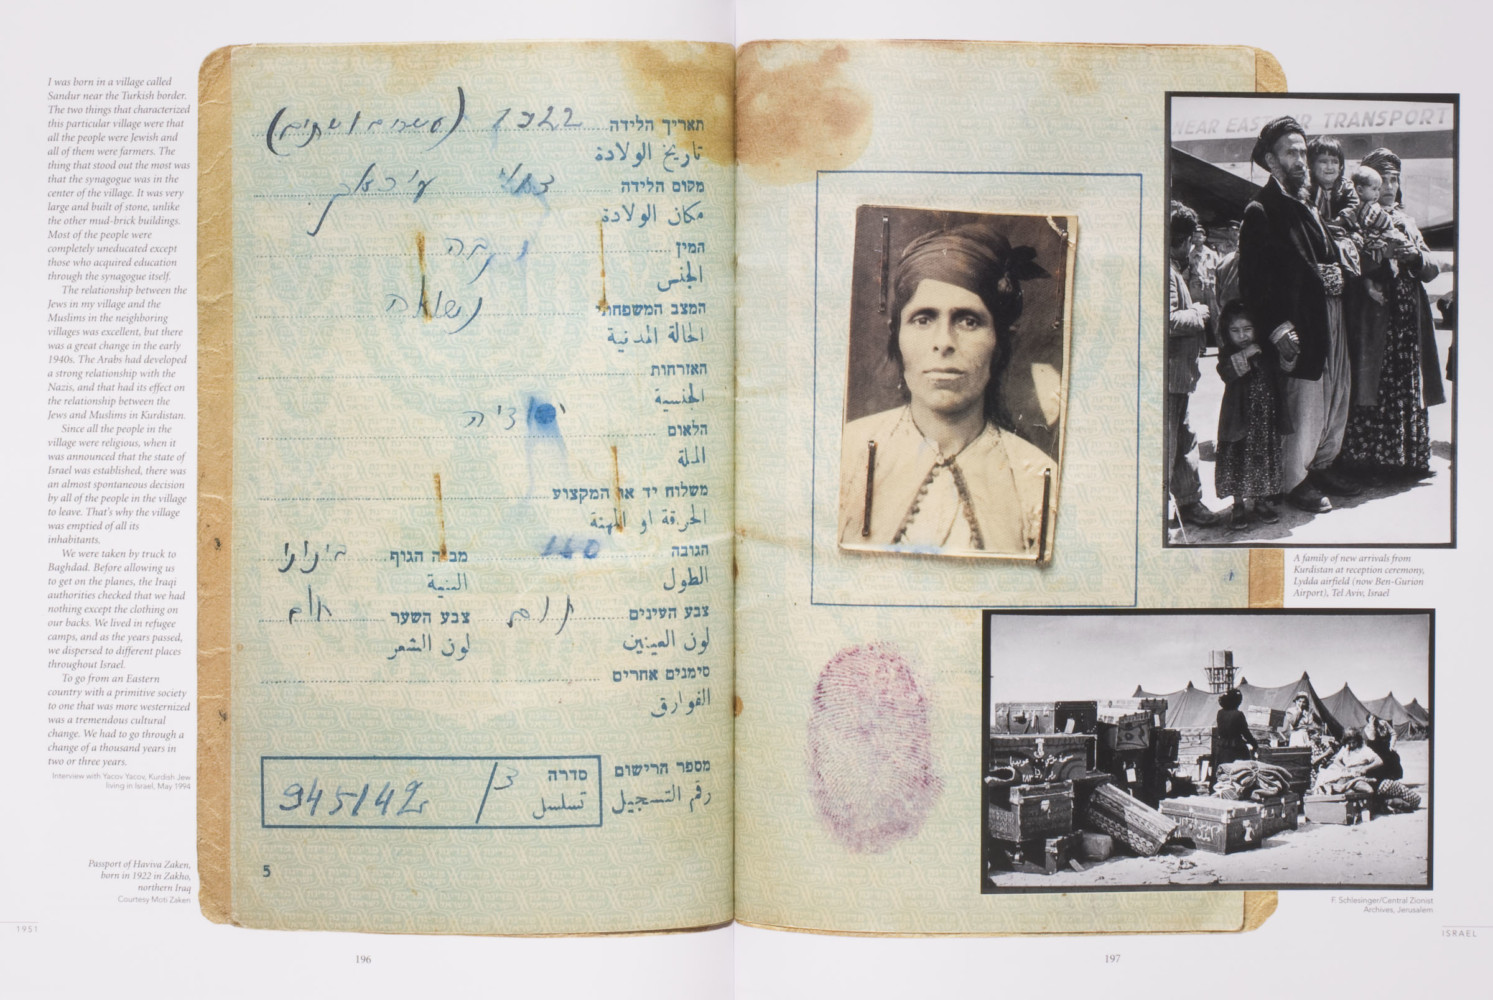 I was born in a village called
Sandur near the Turkish border.
The two things that characterized
this particular village were that
all the people were Jewish and
all of them were farmers. The
thing that stood out the most was
that the synagogue was in the
center of the village. It was very
large and built of stone, unlike
the other mud-brick buildings.
Most of the people were
completely uneducated except
those who acquired education
through the synagogue itself.
The relationship between the
Jews in my village and the
Muslims in the neighboring
villages was excellent, but there
was a great change in the early
1940s. The Arabs had developed
a strong relationship with the
Nazis, and that had its effect on
the relationship between the
Jews and Muslims in Kurdistan.
Since all the people in the
village were religious, when it
was announced that the state of
Israel was established, there was
an almost spontaneous decision
by all of the people in the village
to leave. That's why the village
was emptied of all its
inhabitants.
We were taken by truck to
Baghdad. Before allowing us
to get on the planes, the Iraqi
authorities checked that we had
nothing except the clothing on
our backs. We lived in refugee
camps, and as the years passed,
we dispersed to different places
throughout Israel.
To go from an Eastern
country with a primitive society
to one that was more westernized
was a tremendous cultural
change. We had to go through a
change of a thousand years in
two or three years.
Interview with Yacov Yacov, Kurdish Jew
living in Israel, May 1994
Passport of Haviva Zaken,
born in 1922 in Zakho,
northern Iraq
Courtesy Moti Zaken
1951
196
תאריך הלידה 1922 (עשרים ושתים)
تاريخ الولادة
מקום הלידה עיראק
مكان الولادة
המין נקבה
الجنس
המצב המשפחתי נשואה
الحالة المدنية
האזרחות
الجنسية
הלאום יהודיה
الملة
משלוח יד או המקצוע
الحرفة او المهنة
הגובה 160 מבנה הגוף בינוני
الطول البنية
צבע העינים חום צבע השער חום
لون العينين لون الشعر
סימנים אחרים
الفوارق
מספר הרישום סדרה 945142
رقم التسجيل تسلسل
5
NEAR EAST AIR TRANSPORT
A family of new arrivals from
Kurdistan at reception ceremony,
Lydda airfield (now Ben-Gurion
Airport), Tel Aviv, Israel
F. Schlesinger/Central Zionist
Archives, Jerusalem
ISRAEL
197